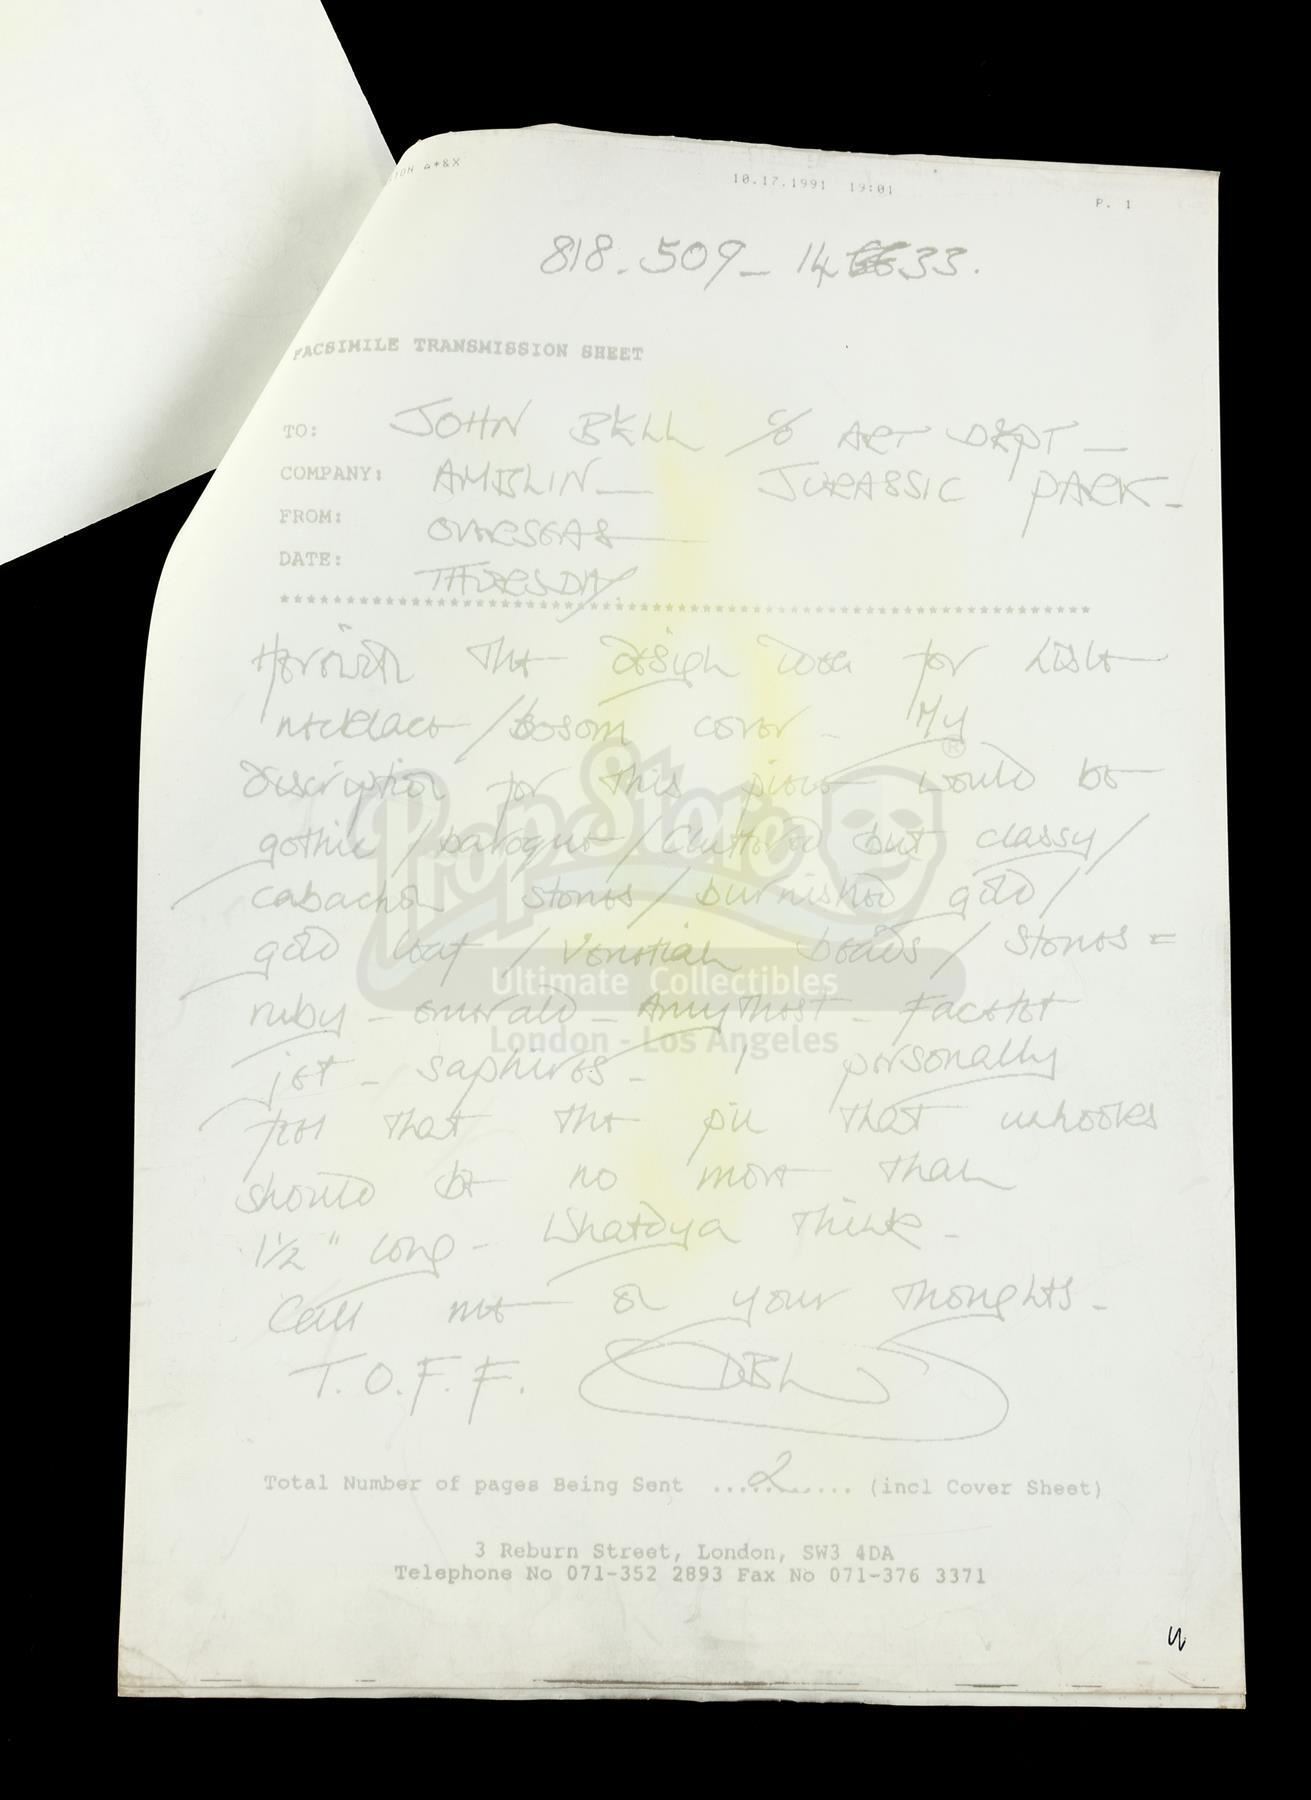 TON △*&X
10.17.1991 19:01
P. 1
818-509-14 33.
FACSIMILE TRANSMISSION SHEET
TO: JOHN BELL c/o ART DEPT -
COMPANY: AMBLIN - JURASSIC PARK -
FROM: OVERSEAS
DATE: THURSDAY.
*************************************************************
Herewith the design idea for
necklace / bosom cover - My
description for this piece would be
gothic / baroque / cluttered but classy /
cabachon stones / burnished gold /
gold leaf / Venetian beads / Stones =
ruby - emerald - Amythest - Facetet
jet - saphires - I personally
feel that the pin that unhooks
should be no more than
1½" long - Whatdya think -
Call me on your thoughts -
T.O.F.F. DBL
Total Number of pages Being Sent ....2...... (incl Cover Sheet)
3 Reburn Street, London, SW3 4DA
Telephone No 071-352 2893 Fax No 071-376 3371
PropStore ®
Ultimate Collectibles
London - Los Angeles